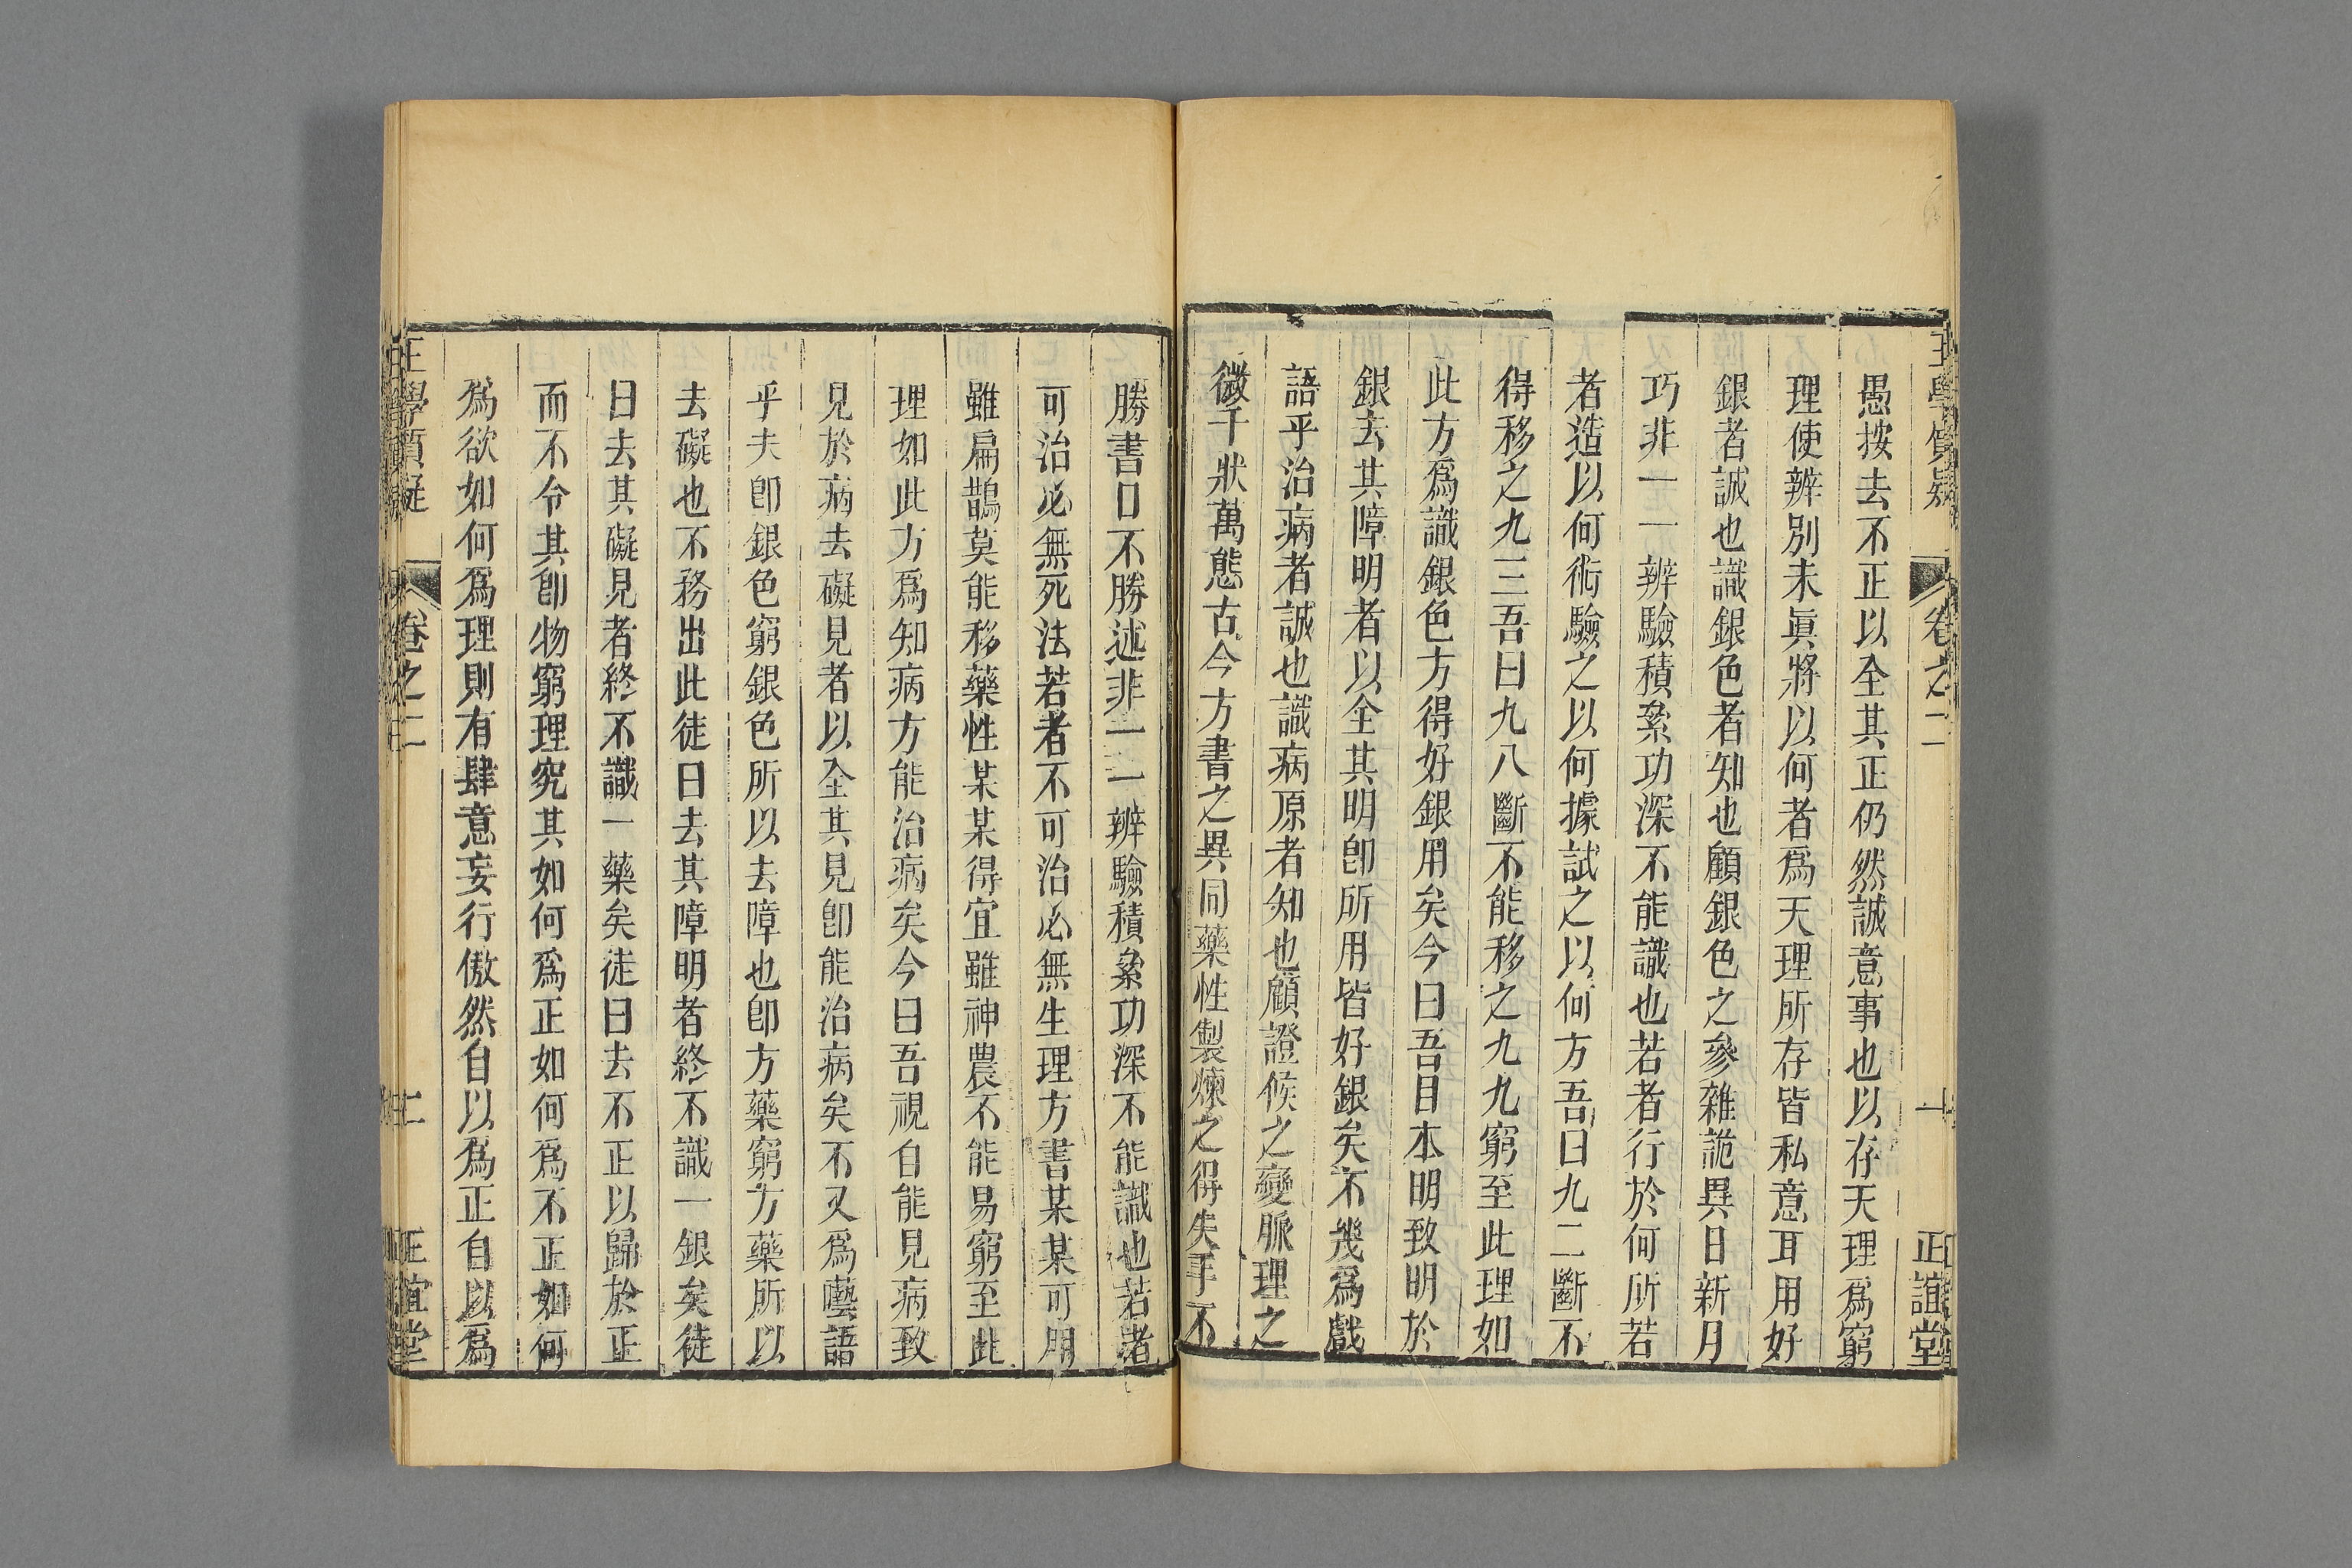 王學質疑 卷之二 一 正誼堂
愚按去不正以全其正仍然誠意事也以存天理爲窮
理使辨別未眞將以何者爲天理所存皆私意耳用好
銀者誠也識銀色者知也顧銀色之參雜詭異日新月
巧非一一辨驗積絫功深不能識也若者行於何所若
者造以何術驗之以何據試之以何方吾曰九二斷不
得移之九三吾曰九八斷不能移之九九窮至此理如
此方爲識銀色方得好銀用矣今曰吾目本明致明於
銀去其障明者以全其明卽所用皆好銀矣不幾爲戲
語乎治病者誠也識病原者知也顧證候之變脈理之
微千狀萬態古今方書之異同藥性製煉之得失手不
勝書口不勝述非一一辨驗積絫功深不能識也若者
可治必無死法若者不可治必無生理方書某某可用
雖扁鵲莫能移藥性某某得宜雖神農不能易窮至此
理如此方爲知病方能治病矣今曰吾視自能見病致
見於病去礙見者以全其見卽能治病矣不又爲囈語
乎夫卽銀色窮銀色所以去障也卽方藥窮方藥所以
去礙也不務出此徒曰去其障明者終不識一銀矣徒
曰去其礙見者終不識一藥矣徒曰去不正以歸於正
而不令其卽物窮理究其如何爲正如何爲不正如何
爲欲如何爲理則有肆意妄行傲然自以爲正自以爲
王學質疑 卷之二 二 正誼堂